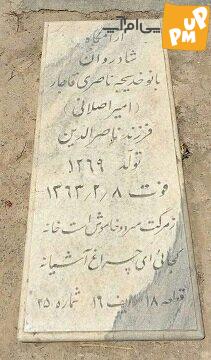 آرامگاه
شادروان
بانو خدیجه ناصری قاجار
(امیراصلانی)
فرزند ناصرالدین
تولد
۱۲۶۹
فوت ۱۳۶۳/۲/۸
ز مرگت سرد و خاموش است خانه
کجائی ای چراغ آشیانه
قطعه ۱۸ ردیف ۱۶ شماره ۲۵
UP
PM